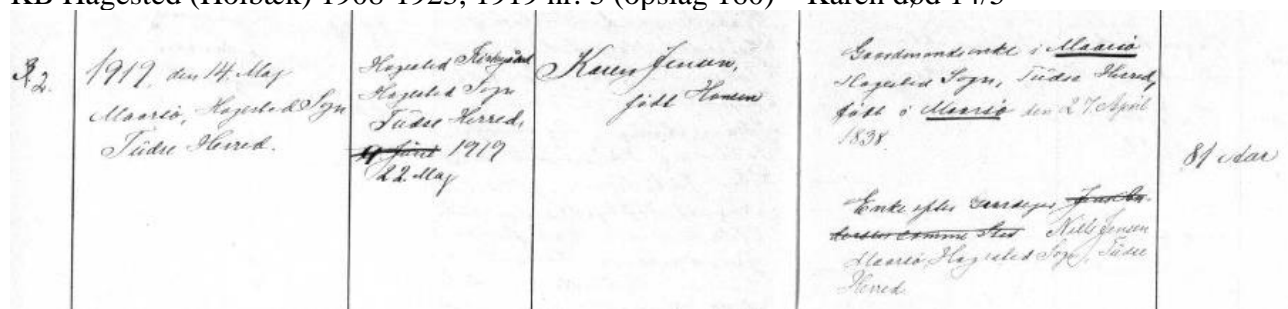 KB Hagested (Holbæk) 1908-1923, 1919 nr. 3 (opslag 160) – Karen død 14/5
2.
1919. den 14. Maj
Maarsø, Hagested Sogn
Tudse Herred.
Hagested Kirkegård
Hagested Sogn
Tudse Herred,
Juni 1919
22. Maj
Karen Jensen,
født Hansen
Gaardmandsenke i Maarsø
Hagested Sogn, Tudse Herred,
født i Maarsø den 27. April
1838.
Enke efter Gaardejer
samme Sted Niels Jensen
Maarsø, Hagested Sogn, Tudse
Herred.
81 Aar